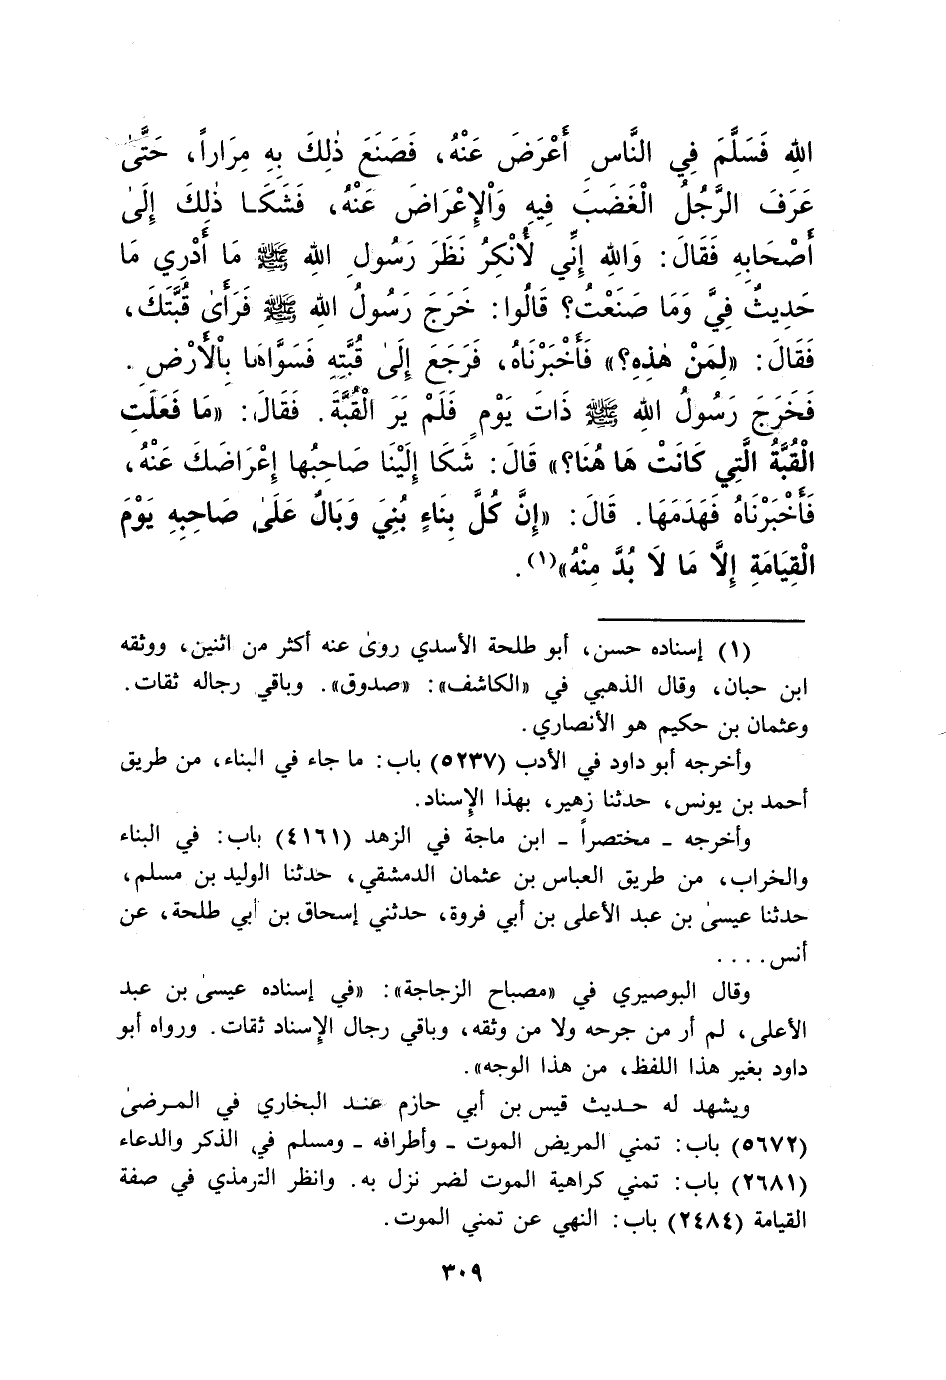 اللهِ فَسَلَّمَ فِي النَّاسِ أَعْرَضَ عَنْهُ، فَصَنَعَ ذٰلِكَ بِهِ مِرَاراً، حَتَّىٰ
عَرَفَ الرَّجُلُ الْغَضَبَ فِيهِ وَالْإِعْرَاضَ عَنْهُ، فَشَكَا ذٰلِكَ إِلَىٰ
أَصْحَابِهِ فَقَالَ: وَاللهِ إِنِّي لَأُنْكِرُ نَظَرَ رَسُولِ اللهِ ﷺ مَا أَدْرِي مَا
حَدِيثٌ فِيَّ وَمَا صَنَعْتُ؟ قَالُوا: خَرَجَ رَسُولُ اللهِ ﷺ فَرَأَىٰ قُبَّتَكَ،
فَقَالَ: «لِمَنْ هٰذِهِ؟» فَأَخْبَرْنَاهُ، فَرَجَعَ إِلَىٰ قُبَّتِهِ فَسَوَّاهَا بِالْأَرْضِ.
فَخَرَجَ رَسُولُ اللهِ ﷺ ذَاتَ يَوْمٍ فَلَمْ يَرَ الْقُبَّةَ. فَقَالَ: «مَا فَعَلَتِ
الْقُبَّةُ الَّتِي كَانَتْ هَا هُنَا؟» قَالَ: شَكَا إِلَيْنَا صَاحِبُها إِعْرَاضَكَ عَنْهُ،
فَأَخْبَرْنَاهُ فَهَدَمَهَا. قَالَ: «إِنَّ كُلَّ بِنَاءٍ بُنِيَ وَبَالٌ عَلَىٰ صَاحِبِهِ يَوْمَ
الْقِيَامَةِ إِلَّا مَا لَا بُدَّ مِنْهُ»(١).
(١) إسناده حسن، أبو طلحة الأسدي روىٰ عنه أكثر من اثنين، ووثقه
ابن حبان، وقال الذهبي في «الكاشف»: «صدوق». وباقي رجاله ثقات.
وعثمان بن حكيم هو الأنصاري.
وأخرجه أبو داود في الأدب (٥٢٣٧) باب: ما جاء في البناء، من طريق
أحمد بن يونس، حدثنا زهير، بهذا الإسناد.
وأخرجه ـ مختصراً ـ ابن ماجة في الزهد (٤١٦١) باب: في البناء
والخراب، من طريق العباس بن عثمان الدمشقي، حدثنا الوليد بن مسلم،
حدثنا عيسىٰ بن عبد الأعلى بن أبي فروة، حدثني إسحاق بن أبي طلحة، عن
أنس....
وقال البوصيري في «مصباح الزجاجة»: «في إسناده عيسىٰ بن عبد
الأعلى، لم أر من جرحه ولا من وثقه، وباقي رجال الإسناد ثقات. ورواه أبو
داود بغير هذا اللفظ، من هذا الوجه».
ويشهد له حديث قيس بن أبي حازم عند البخاري في المرضىٰ
(٥٦٧٢) باب: تمني المريض الموت ـ وأطرافه ـ ومسلم في الذكر والدعاء
(٢٦٨١) باب: تمني كراهية الموت لضر نزل به. وانظر الترمذي في صفة
القيامة (٢٤٨٤) باب: النهي عن تمني الموت.
٣٠٩